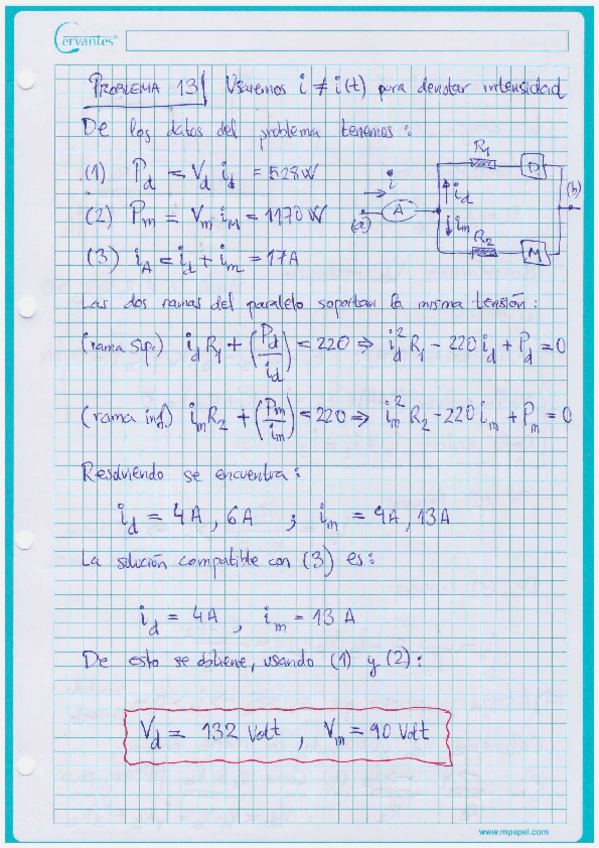 Cervantes
PROBLEMA 13 Usaremos i ≠ i(t) para denotar intensidad
De los datos del problema tenemos:
(1) P_d = V_d i_d = 528W
(2) P_m = V_m i_M = 1170 W
(3) i_A = i_d + i_m = 17A
i
(a)
A
R_1
D
i_d
i_m
R_2
M
(b)
Las dos ramas del paralelo soportan la misma tensión:
(rama sup.) i_d R_1 + (P_d/i_d) = 220 ⇒ i_d^2 R_1 - 220 i_d + P_d = 0
(rama inf.) i_m R_2 + (P_m/i_m) = 220 ⇒ i_m^2 R_2 - 220 i_m + P_m = 0
Resolviendo se encuentra:
i_d = 4A, 6A ; i_m = 9A, 13A
La solución compatible con (3) es:
i_d = 4A, i_m = 13 A
De esto se obtiene, usando (1) y (2):
V_d = 132 Volt, V_m = 90 Volt
www.mpapel.com